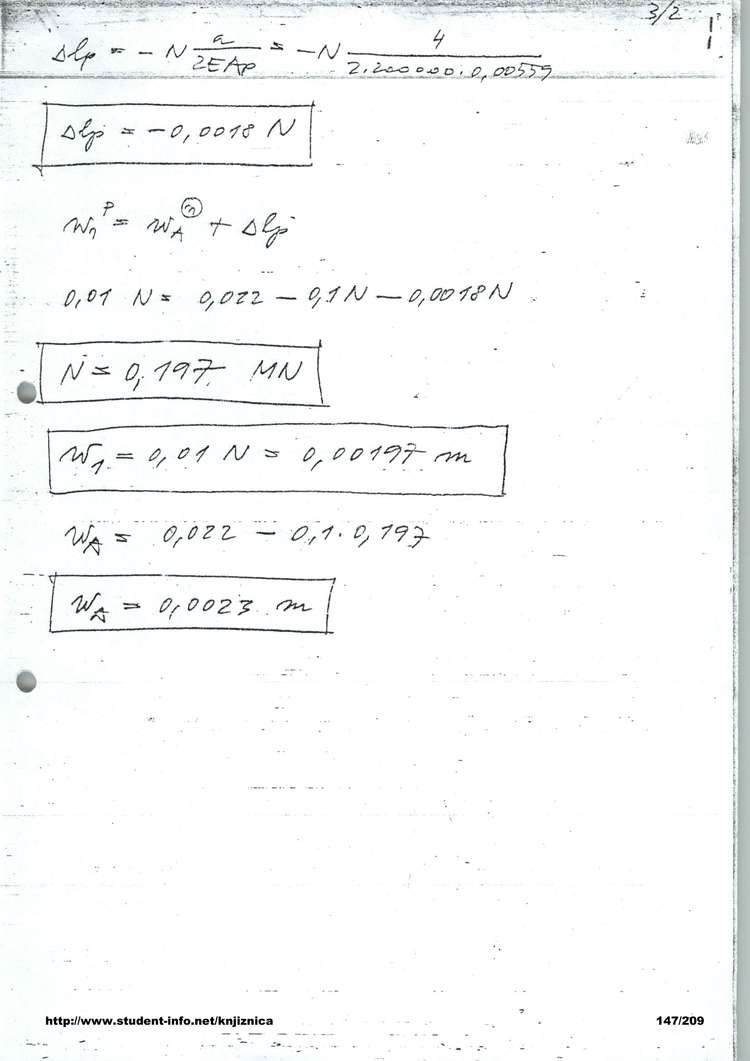 3/2
Δlp = - N a/2EAp = -N 4/2.200000.0,00559
Δlp = -0,0018 N
w₁ᴾ = w_A^② + Δlp
0,01 N = 0,022 - 0,1N - 0,0018N
N = 0,197 MN
w₁ = 0,01 N = 0,00197 m
w_A = 0,022 - 0,1.0,197
w_A = 0,0023 m
http://www.student-info.net/knjiznica 147/209